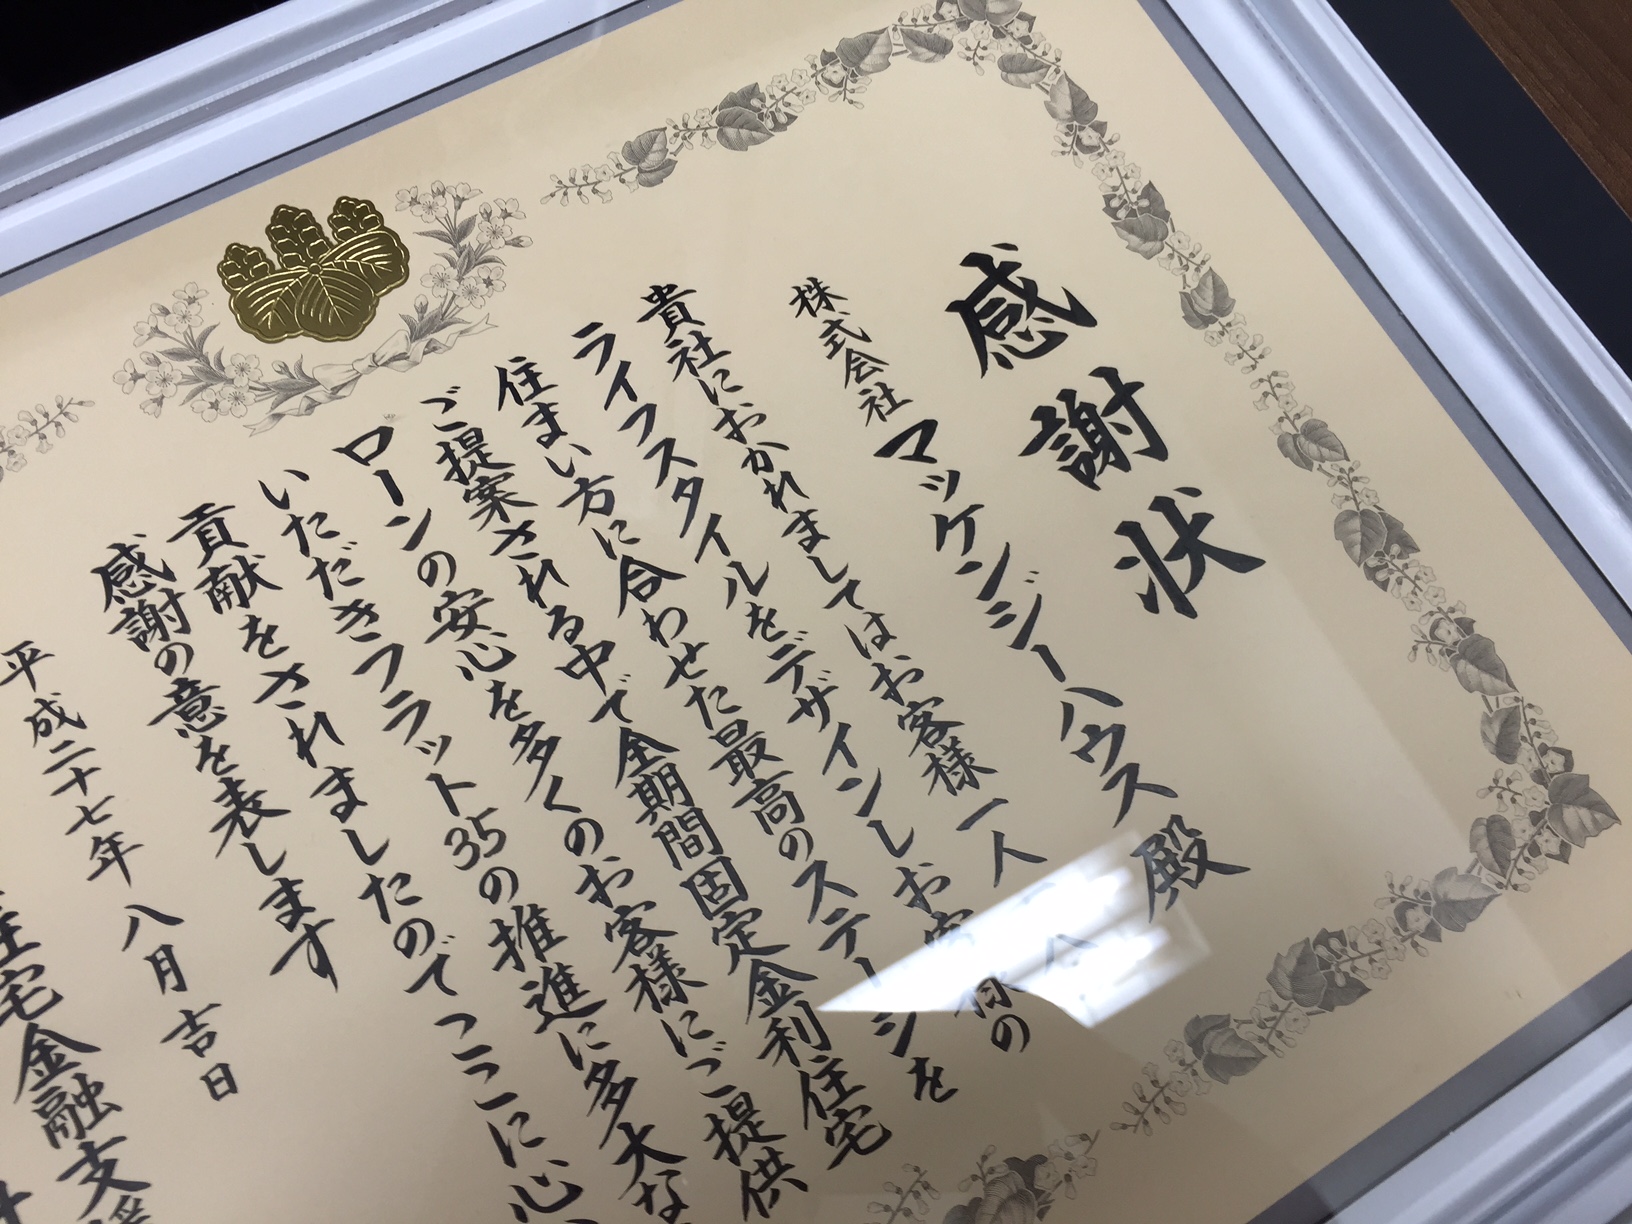 感謝状
株式会社マッケンジーハウス殿
貴社におかれましてはお客様一人
ライフスタイルをデザインしお客様の
住まい方に合わせた最高のステージを
ご提案される中で全期間固定金利住宅
ローンの安心を多くのお客様にご提供
いただきフラット35の推進に多大な
貢献をされましたのでここに心
感謝の意を表します
平成二十七年八月吉日
住宅金融支援